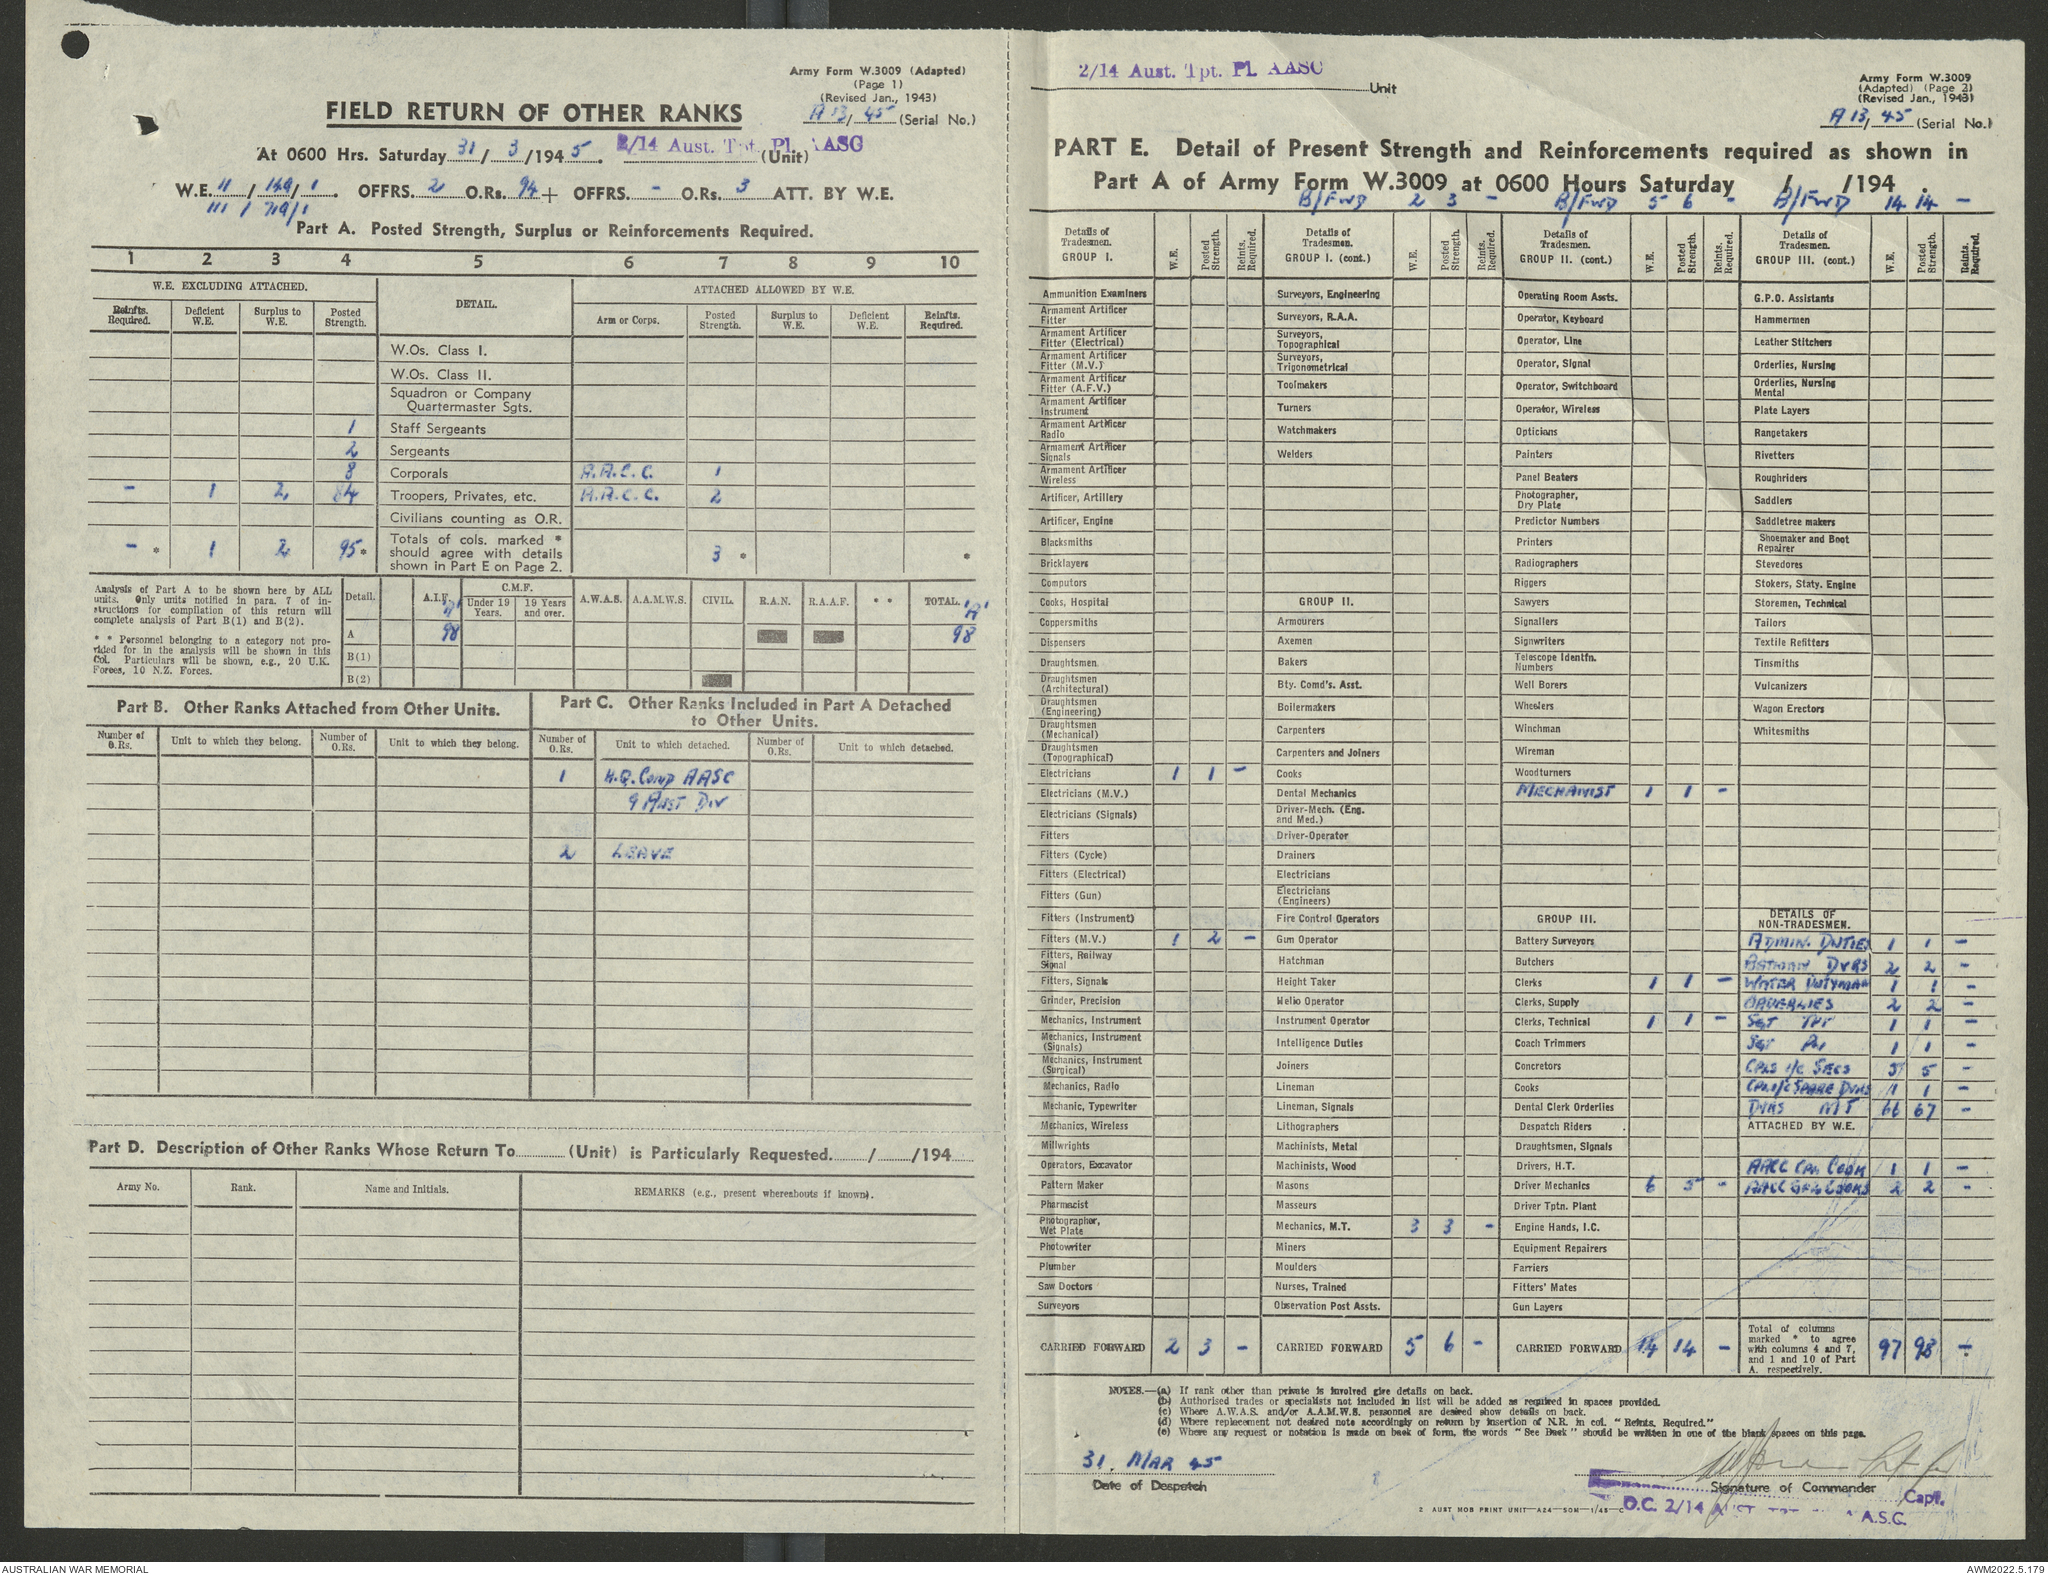 Army Form W.3009 (Adapted)
(Page 1)
(Revised Jan., 1943)
A 13/45 (Serial No.)
FIELD RETURN OF OTHER RANKS
At 0600 Hrs. Saturday 31/3/1945. 2/14 Aust. Tpt. Pl. AASC (Unit)
W.E. II/149/1. OFFRS. 2 O.Rs. 94 + OFFRS. - O.Rs. 3 ATT. BY W.E.
III/719/1
Part A. Posted Strength, Surplus or Reinforcements Required.
1 2 3 4 5 6 7 8 9 10
W.E. EXCLUDING ATTACHED. DETAIL. ATTACHED ALLOWED BY W.E.
Reinfts. Required. Deficient W.E. Surplus to W.E. Posted Strength. Arm or Corps. Posted Strength. Surplus to W.E. Deficient W.E. Reinfts. Required.
W.Os. Class I.
W.Os. Class II.
Squadron or Company Quartermaster Sgts.
1 Staff Sergeants
2 Sergeants
8 Corporals A.A.C.C. 1
- 1 2 84 Troopers, Privates, etc. A.A.C.C. 2
Civilians counting as O.R.
- * 1 2 95 * Totals of cols. marked * should agree with details shown in Part E on Page 2. 3 * *
Analysis of Part A to be shown here by ALL
units. Only units notified in para. 7 of in-
structions for compilation of this return will
complete analysis of Part B(1) and B(2).
* * Personnel belonging to a category not pro-
vided for in the analysis will be shown in this
Col. Particulars will be shown, e.g., 20 U.K.
Forces, 10 N.Z. Forces.
Detail. A.I.F. C.M.F. Under 19 Years. 19 Years and over. A.W.A.S. A.A.M.W.S. CIVIL. R.A.N. R.A.A.F. * * TOTAL.
'A' 'A'
A 98 98
B(1)
B(2)
Part B. Other Ranks Attached from Other Units.
Number of O.Rs. Unit to which they belong. Number of O.Rs. Unit to which they belong.
Part C. Other Ranks Included in Part A Detached
to Other Units.
Number of O.Rs. Unit to which detached. Number of O.Rs. Unit to which detached.
1 H.Q. Comd AASC
9 AUST DIV
2 LEAVE
Part D. Description of Other Ranks Whose Return To (Unit) is Particularly Requested. / /194
Army No. Rank. Name and Initials. REMARKS (e.g., present whereabouts if known).
2/14 Aust. Tpt. Pl. AASC
Unit
Army Form W.3009
(Adapted) (Page 2)
(Revised Jan., 1943)
A 13/45 (Serial No.)
PART E. Detail of Present Strength and Reinforcements required as shown in
Part A of Army Form W.3009 at 0600 Hours Saturday / /194 .
B/FWD 2 3 - B/FWD 5 6 - B/FWD 14 14 -
Details of Tradesmen. GROUP I. W.E. Posted Strength. Reints. Required.
Ammunition Examiners
Armament Artificer Fitter
Armament Artificer Fitter (Electrical)
Armament Artificer Fitter (M.V.)
Armament Artificer Fitter (A.F.V.)
Armament Artificer Instrument
Armament Artificer Radio
Armament Artificer Signals
Armament Artificer Wireless
Artificer, Artillery
Artificer, Engine
Blacksmiths
Bricklayers
Computors
Cooks, Hospital
Coppersmiths
Dispensers
Draughtsmen
Draughtsmen (Architectural)
Draughtsmen (Engineering)
Draughtsmen (Mechanical)
Draughtsmen (Topographical)
Electricians 1 1 -
Electricians (M.V.)
Electricians (Signals)
Fitters
Fitters (Cycle)
Fitters (Electrical)
Fitters (Gun)
Fitters (Instrument)
Fitters (M.V.) 1 2 -
Fitters, Railway Signal
Fitters, Signals
Grinder, Precision
Mechanics, Instrument
Mechanics, Instrument (Signals)
Mechanics, Instrument (Surgical)
Mechanics, Radio
Mechanic, Typewriter
Mechanics, Wireless
Millwrights
Operators, Excavator
Pattern Maker
Pharmacist
Photographer, Wet Plate
Photowriter
Plumber
Saw Doctors
Surveyors
CARRIED FORWARD 2 3 -
Details of Tradesmen. GROUP I. (cont.) W.E. Posted Strength. Reints. Required.
Surveyors, Engineering
Surveyors, R.A.A.
Surveyors, Topographical
Surveyors, Trigonometrical
Toolmakers
Turners
Watchmakers
Welders
GROUP II.
Armourers
Axemen
Bakers
Bty. Comd's. Asst.
Boilermakers
Carpenters
Carpenters and Joiners
Cooks
Dental Mechanics
Driver-Mech. (Eng. and Med.)
Driver-Operator
Drainers
Electricians
Electricians (Engineers)
Fire Control Operators
Gun Operator
Hatchman
Height Taker
Helio Operator
Instrument Operator
Intelligence Duties
Joiners
Lineman
Lineman, Signals
Lithographers
Machinists, Metal
Machinists, Wood
Masons
Masseurs
Mechanics, M.T. 3 3 -
Miners
Moulders
Nurses, Trained
Observation Post Assts.
CARRIED FORWARD 5 6 -
Details of Tradesmen. GROUP II. (cont.) W.E. Posted Strength. Reints. Required.
Operating Room Assts.
Operator, Keyboard
Operator, Line
Operator, Signal
Operator, Switchboard
Operator, Wireless
Opticians
Painters
Panel Beaters
Photographer, Dry Plate
Predictor Numbers
Printers
Radiographers
Riggers
Sawyers
Signallers
Signwriters
Telescope Identfn. Numbers
Well Borers
Wheelers
Winchman
Wireman
Woodturners
MECHANIST 1 1 -
GROUP III.
Battery Surveyors
Butchers
Clerks 1 1 -
Clerks, Supply
Clerks, Technical 1 1 -
Coach Trimmers
Concretors
Cooks
Dental Clerk Orderlies
Despatch Riders
Draughtsmen, Signals
Drivers, H.T.
Driver Mechanics 6 5 -
Driver Tptn. Plant
Engine Hands, I.C.
Equipment Repairers
Farriers
Fitters' Mates
Gun Layers
CARRIED FORWARD 14 14 -
Details of Tradesmen. GROUP III. (cont.) W.E. Posted Strength. Reints. Required.
G.P.O. Assistants
Hammermen
Leather Stitchers
Orderlies, Nursing
Orderlies, Nursing Mental
Plate Layers
Rangetakers
Rivetters
Roughriders
Saddlers
Saddletree makers
Shoemaker and Boot Repairer
Stevedores
Stokers, Staty. Engine
Storemen, Technical
Tailors
Textile Refitters
Tinsmiths
Vulcanizers
Wagon Erectors
Whitesmiths
DETAILS OF NON-TRADESMEN.
ADMIN. DUTIES 1 1 -
BATMAN DVRS 2 2 -
WATER DUTYMAN 1 1 -
ORDERLIES 2 2 -
Sgt TPT 1 1 -
Sgt Pl 1 1 -
CPLS i/c SECS 5 5 -
CPL i/c SPARE DVRS 1 1 -
DVRS MT 66 67 -
ATTACHED BY W.E.
AACC CPL COOK 1 1 -
AACC COOKS 2 2 -
Total of columns marked * to agree with columns 4 and 7, and 1 and 10 of Part A. respectively. 97 98 -
NOTES.—(a) If rank other than private is involved give details on back.
(b) Authorised trades or specialists not included in list will be added as required in spaces provided.
(c) Where A.W.A.S. and/or A.A.M.W.S. personnel are desired show details on back.
(d) Where replacement not desired note accordingly on return by insertion of N.R. in col. "Reints. Required."
(e) Where any request or notation is made on back of form, the words "See Back" should be written in one of the blank spaces on this page.
31. MAR 45
Date of Despatch
Signature of Commander
Capt.
O.C. 2/14 AUST TPT A.S.C.
2 AUST MOB PRINT UNIT—A24—50M—1/45—C
AUSTRALIAN WAR MEMORIAL
AWM2022.5.179